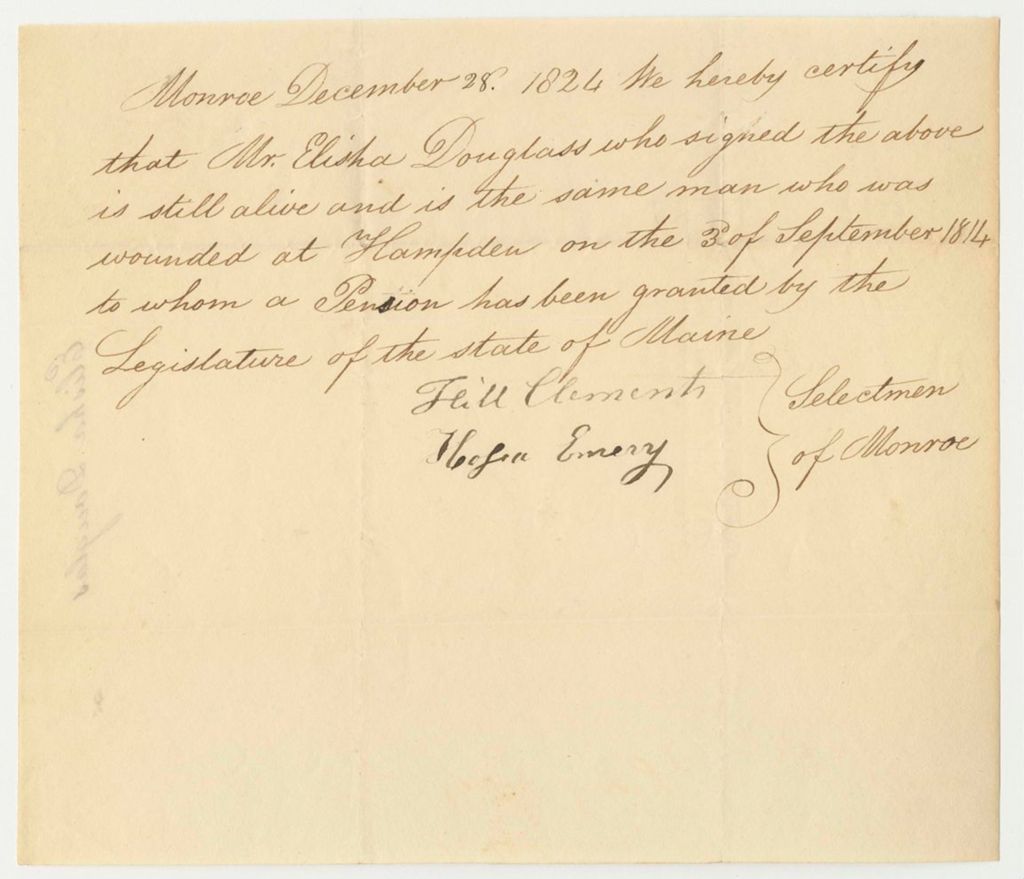 Monroe December 28. 1824 We hereby certify
that Mr. Elisha Douglass who signed the above
is still alive and is the same man who was
wounded at Hampden on the 3 of September 1814
to whom a Pension has been granted by the
Legislature of the state of Maine
Clements
Selectmen
Hosea Emery
of Monroe